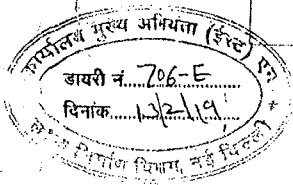 कार्यालय मुख्य अभियंता (ईस्ट) एन.
डायरी नं. 706-E
दिनांक 13/2/19
निर्माण विभाग, नई दिल्ली